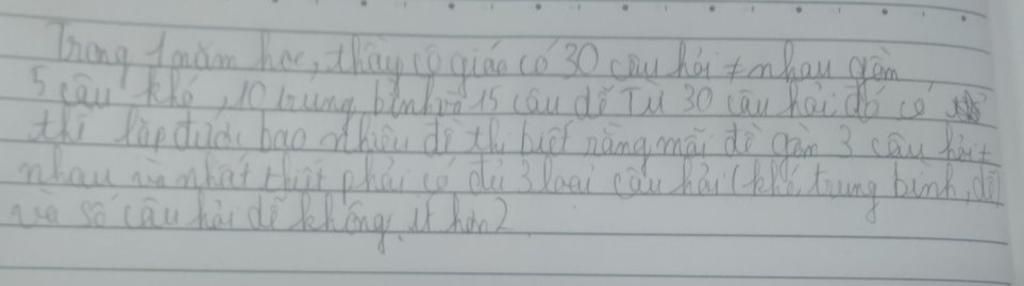 Trong 1 năm học, thầy cô giáo có 30 câu hỏi ≠ nhau gồm
5 câu khó, 10 trung bình và 15 câu dễ Từ 30 câu hỏi đó có
thể lập được bao nhiêu đề thi biết rằng mỗi đề gồm 3 câu hỏi ≠
nhau và nhất thiết phải có đủ 3 loại câu hỏi (khó, trung bình, dễ)
và số câu hỏi dễ không ít hơn 2